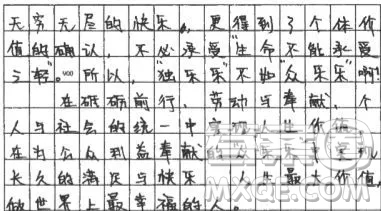 无穷无尽的快乐,更得到了个体价
值的确认,不必承受"生命不能承受
之轻"。所以,"独乐乐"不如"众乐乐"啊!
在砥砺前行,劳动与奉献,个
人与社会的统一中实现人生价值
在为公众利益奉献的
长久的满足与快乐,人生最大价值,
做世界上最幸福的人。